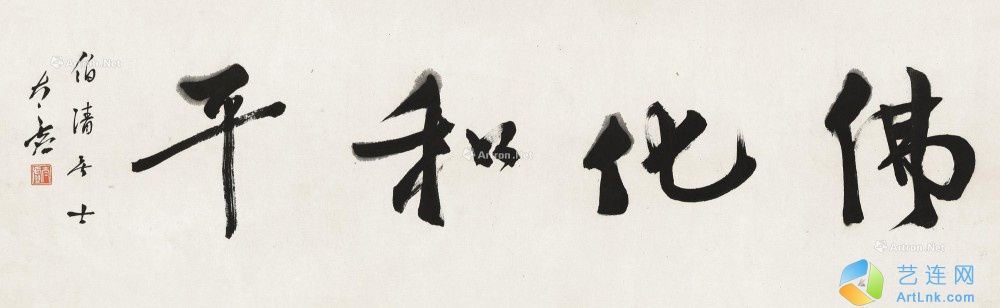 佛化和平
伯清居士
太虚
Artron.Net
Artron.Net
Artron.Net
艺连网
ArtLnk.com